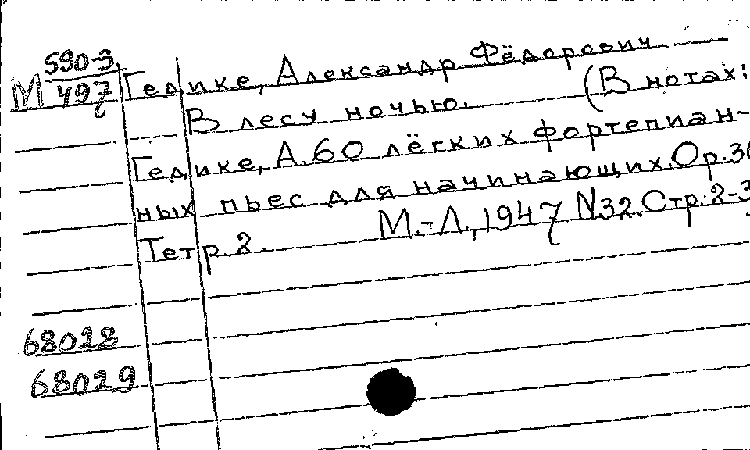 590-3
М 497 Гедике, Александр Фёдорович
В лесу ночью. (В нотах:
Гедике, А. 60 лёгких фортепиан-
ных пьес для начинающих. Op. 36
Тетр 2. М.-Л., 1947 N32. Стр. 2-3
68028
68029